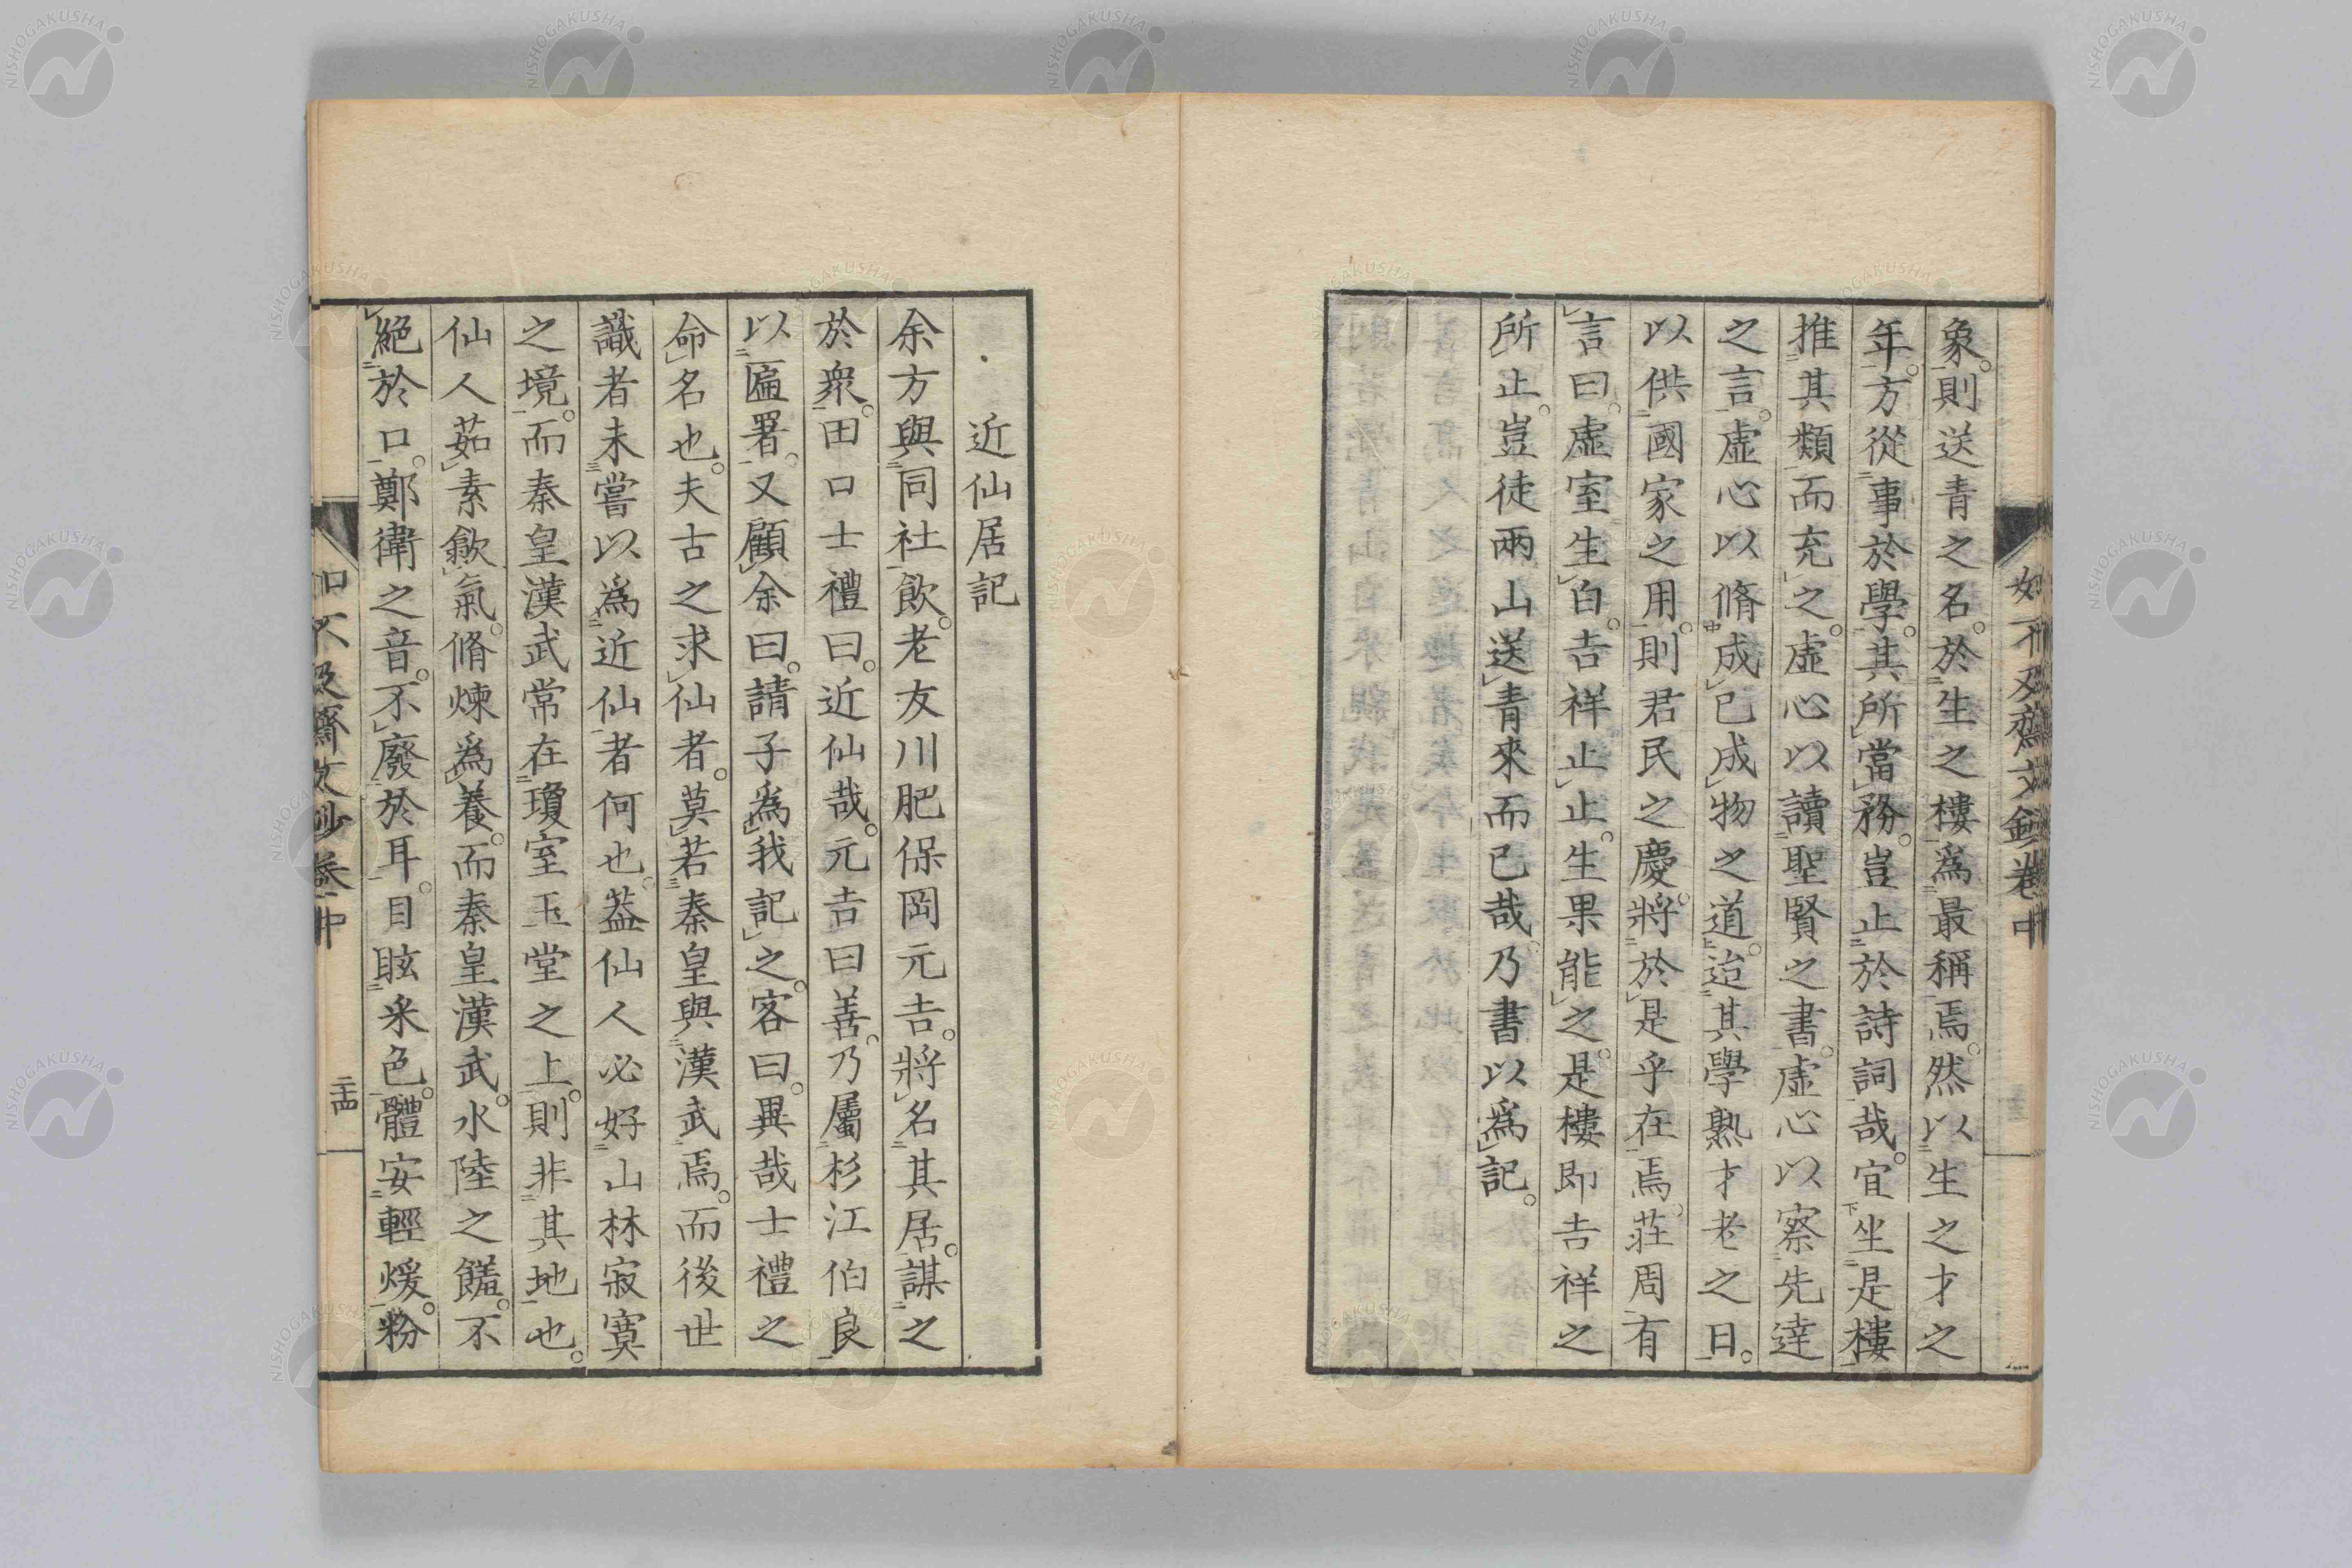 如不及齋文鈔卷中
象。則送青之名。於生之樓爲最稱焉。然以生之才之
年。方從事於學。其所當務。豈止於詩詞哉。宜坐是樓
推其類而充之。虛心以讀聖賢之書。虛心以察先達
之言。虛心以脩成己成物之道。迨其學熟才老之日。
以供國家之用。則君民之慶。將於是乎在焉。莊周有
言曰。虛室生白。吉祥止止。生果能之。是樓即吉祥之
所止。豈徒兩山送青來而已哉。乃書以爲記。
近仙居記
余方與同社飲。老友川肥保岡元吉。將名其居。謀之
於衆。田口士禮曰。近仙哉。元吉曰善。乃屬杉江伯良
以匾署。又顧余曰。請子爲我記之。客曰。異哉士禮之
命名也。夫古之求仙者。莫若秦皇與漢武焉。而後世
識者未嘗以爲近仙者何也。蓋仙人必好山林寂寞
之境。而秦皇漢武常在瓊室玉堂之上。則非其地也。
仙人茹素歙氣。脩煉爲養。而秦皇漢武。水陸之饈。不
絕於口。鄭衛之音。不廢於耳。目眩采色。體安輕煖。粉
如不及齋文鈔卷中
二十四
NISHOGAKUSHA